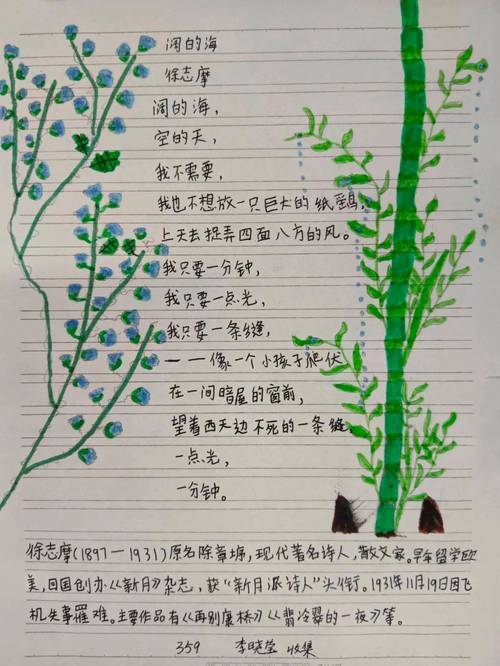 阔的海
徐志摩
阔的海，
空的天，
我不需要，
我也不想放一只巨大的纸鹞，
上天去捉弄四面八方的风。
我只要一分钟，
我只要一点光，
我只要一条缝，
——像一个小孩子爬伏
在一间暗屋的窗前，
望着西天边不死的一条缝
一点光，
一分钟。
徐志摩(1897—1931)原名徐章垿，现代著名诗人，散文家。早年留学欧
美，回国创办《新月》杂志，获"新月派诗人"头衔。1931年11月19日因飞
机失事罹难。主要作品有《再别康桥》《翡冷翠的一夜》等。
359 李晓莹 收集